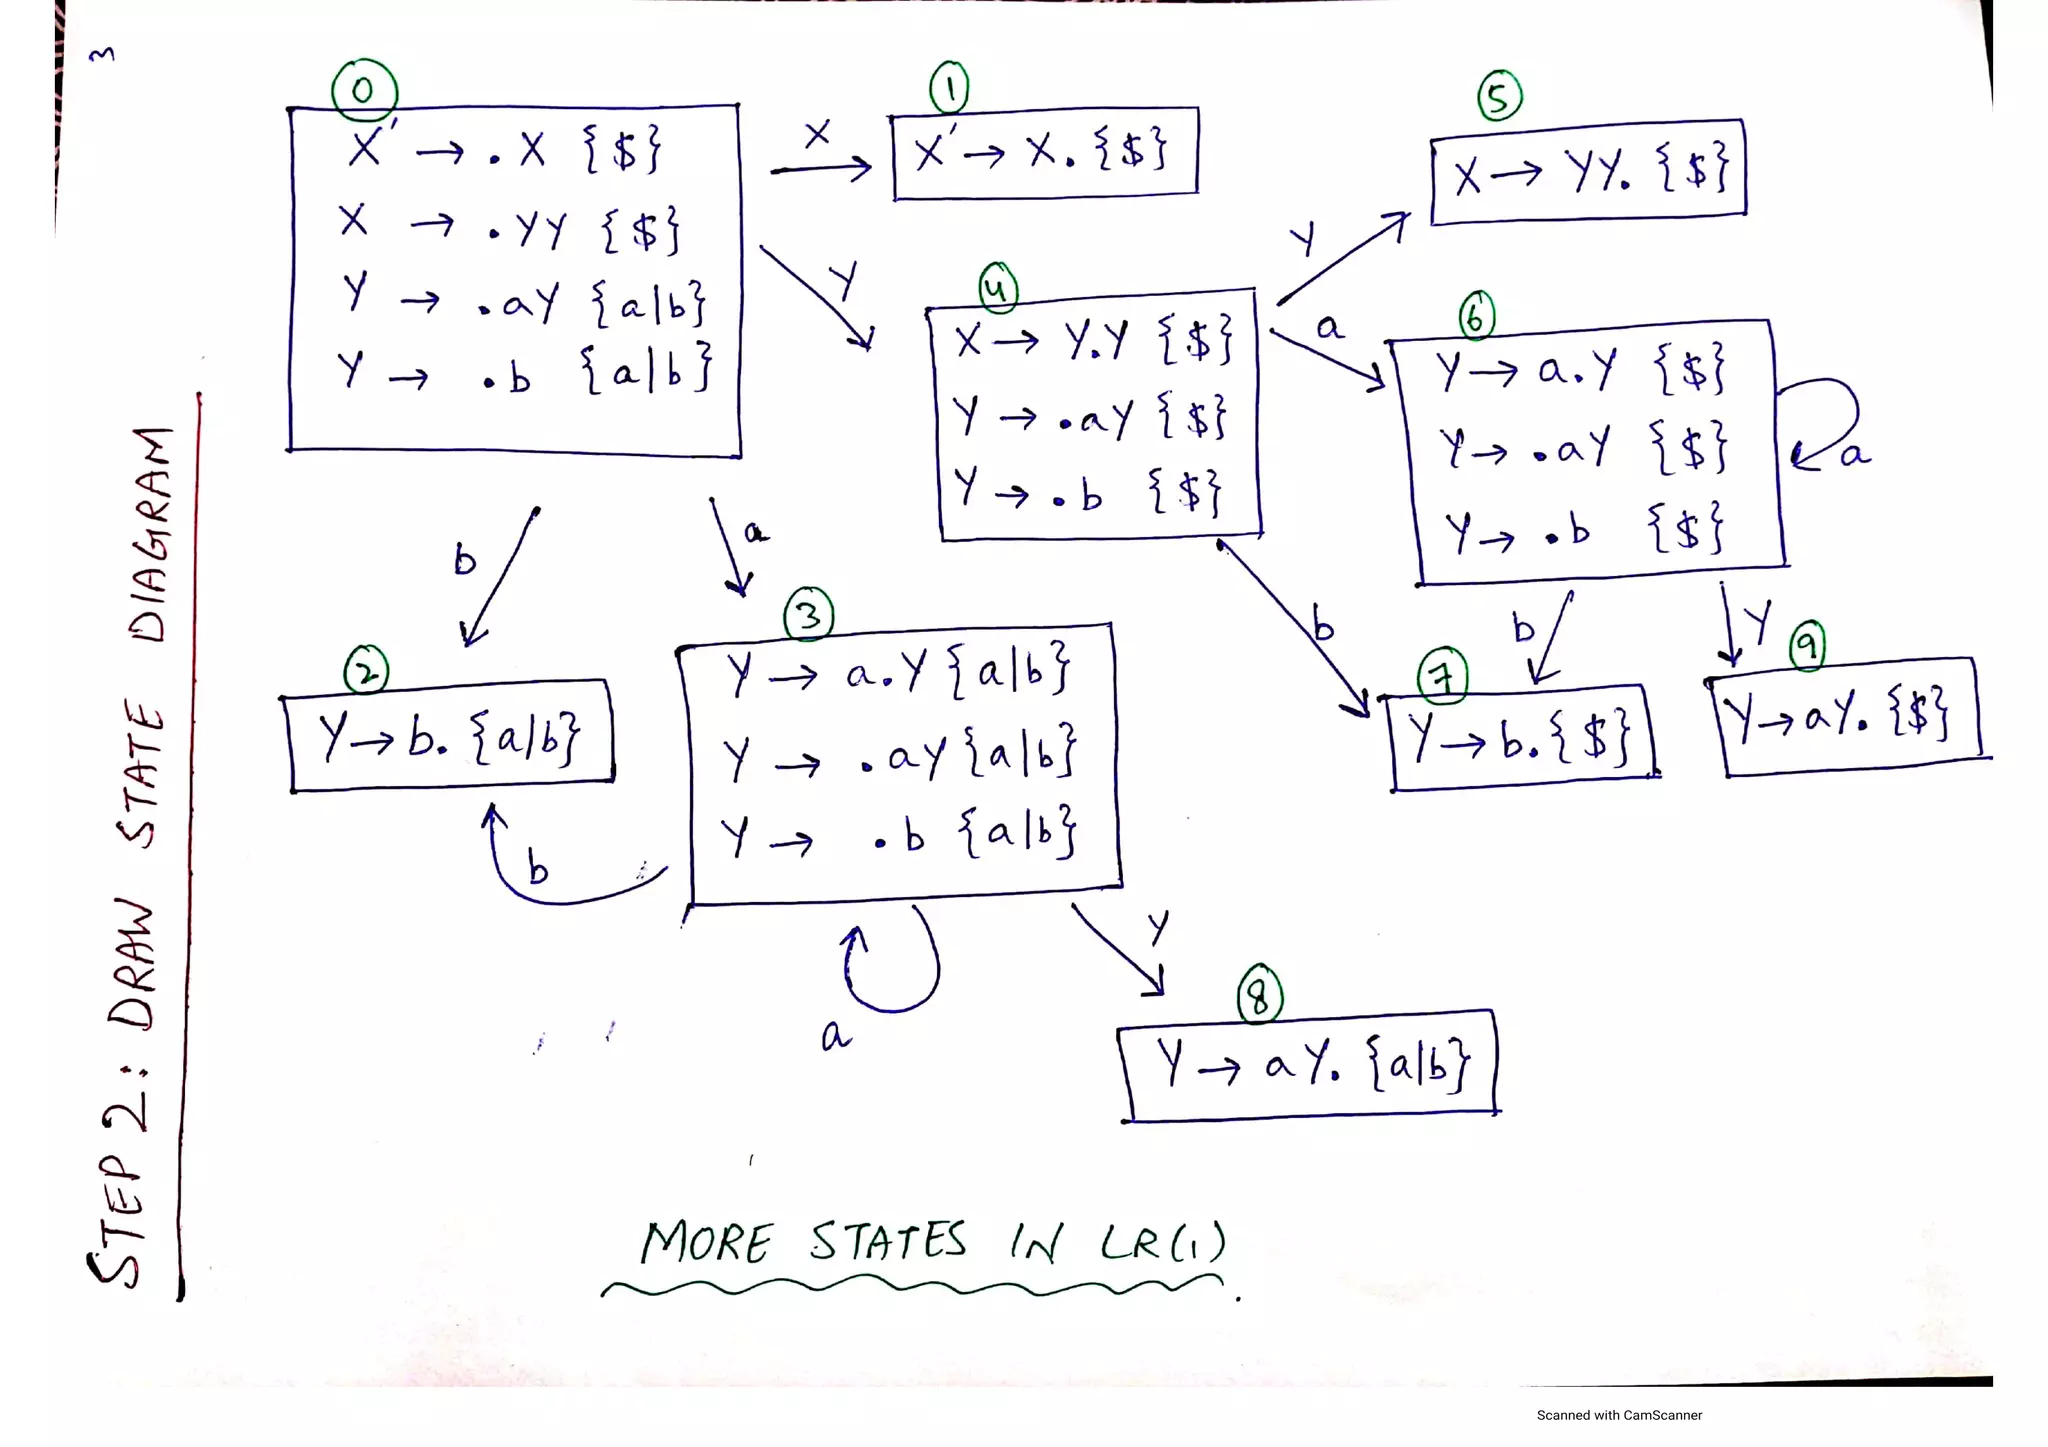 3
STEP 2: DRAW STATE DIAGRAM
0
X' → .X {$}
X → .YY {$}
Y → .aY {a|b}
Y → .b {a|b}
X
1
X' → X. {$}
Y
4
X → Y.Y {$}
Y → .aY {$}
Y → .b {$}
Y
5
X → YY. {$}
a
6
Y → a.Y {$}
Y → .aY {$}
Y → .b {$}
a
b
a
b
b
Y
2
Y → b. {a|b}
3
Y → a.Y {a|b}
Y → .aY {a|b}
Y → .b {a|b}
7
Y → b. {$}
9
Y → aY. {$}
b
a
Y
8
Y → aY. {a|b}
MORE STATES IN LR(1).
Scanned with CamScanner